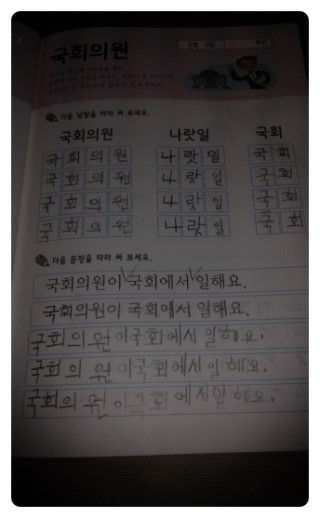 국회의원
다음 낱말을 따라 써 보세요.
국회의원 나랏일 국회
국회의원 나랏일 국회
국회의원 나랏일 국회
국회의원 나랏일 국회
국회의원 나랏일 국회
다음 문장을 따라 써 보세요.
국회의원이 국회에서 일해요.
국회의원이 국회에서 일해요.
국회의원이국회에서일해요.
국회의원이국회에서일해요.
국회의원이국회에서일해요.